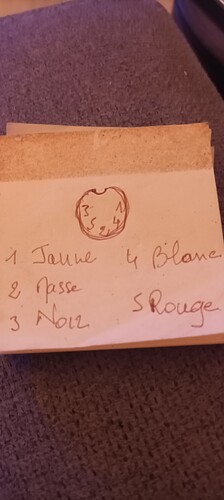 3 1
5 2 4
1 Jaune 4 Blanc
2 Masse
3 Noir 5 Rouge